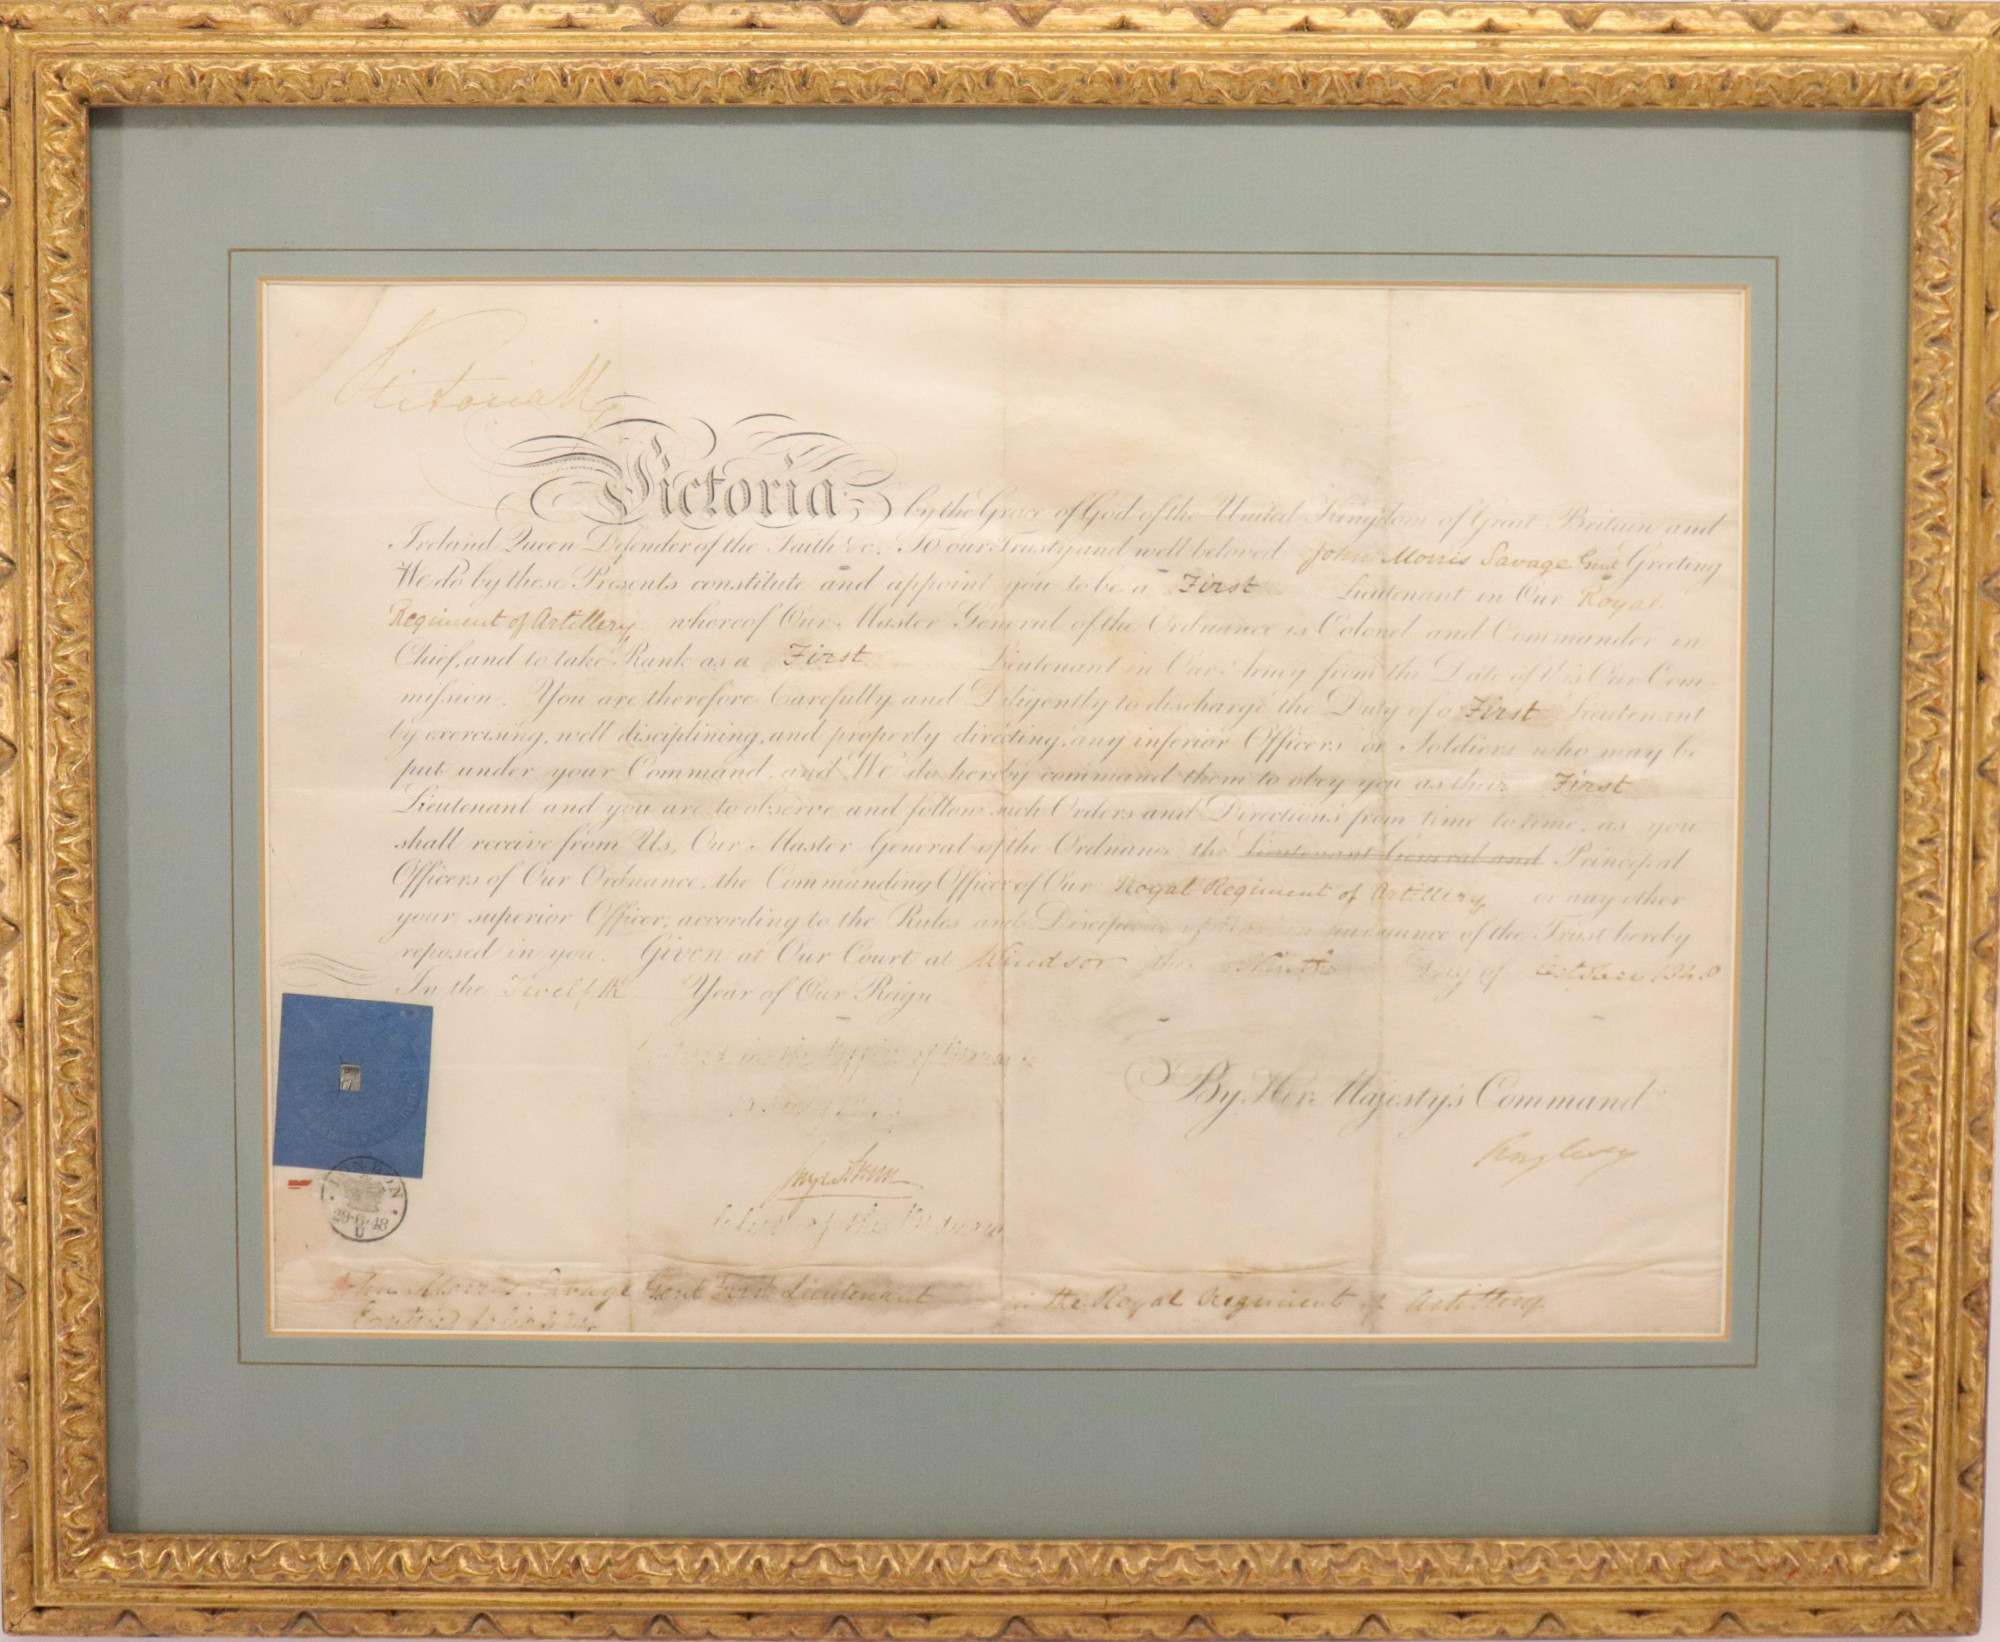 Victoria R
Victoria by the Grace of God of the United Kingdom of Great Britain and
Ireland Queen Defender of the Faith &c. To our Trusty and well beloved John Morris Savage Gent Greeting
We do by these Presents constitute and appoint you to be a First Lieutenant in Our Royal
Regiment of Artillery whereof Our Master General of the Ordnance is Colonel and Commander in
Chief, and to take Rank as a First Lieutenant in Our Army from the Date of this Our Com-
mission. You are therefore Carefully and Diligently to discharge the Duty of a First Lieutenant
by exercising, well disciplining, and properly directing, any inferior Officers or Soldiers who may be
put under your Command, and We do hereby command them to obey you as their First
Lieutenant and you are to observe and follow such Orders and Directions from time to time, as you
shall receive from Us, Our Master General of the Ordnance, the Lieutenant General and Principal
Officers of Our Ordnance, the Commanding Officer of Our Royal Regiment of Artillery or any other
your superior Officer, according to the Rules and Discipline of War in pursuance of the Trust hereby
reposed in you. Given at Our Court at Windsor the Ninth Day of October 1848
In the Twelfth Year of Our Reign
in the Office of
By Her Majesty's Command
Anglesey
of the
LONDON
29·6·48
U
John Morris Savage Gent First Lieutenant in the Royal Regiment of Artillery